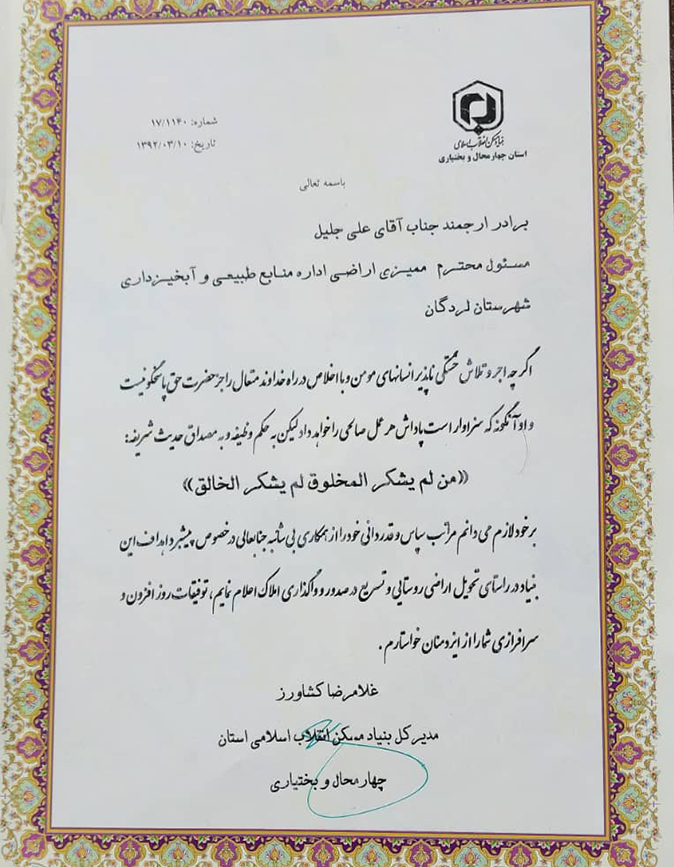 بنیاد مسکن انقلاب اسلامی
استان چهارمحال و بختیاری
شماره: ۱۷/۱۱۴۰
تاریخ: ۱۳۹۲/۰۳/۱۰
باسمه تعالی
برادر ارجمند جناب آقای علی جلیل
مسئول محترم ممیزی اراضی اداره منابع طبیعی و آبخیزداری
شهرستان لردگان
اگر چه اجر و تلاش خستگی ناپذیر انسانهای مومن و با اخلاص در راه خداوند متعال را جز حضرت حق پاسخگو نیست
و او آنگونه که سزاوار است پاداش هر عمل صالحی را خواهد داد لیکن به حکم وظیفه و به مصداق حدیث شریفه:
((من لم یشکر المخلوق لم یشکر الخالق))
بر خود لازم می دانم مراتب سپاس و قدردانی خود را از همکاری بی شائبه جنابعالی در خصوص پیشبرد اهداف این
بنیاد در راستای تحویل اراضی روستایی و تسریع در صدور و واگذاری املاک اعلام نمایم، توفیقات روز افزون و
سرافرازی شما را از ایزد منان خواستارم.
غلامرضا کشاورز
مدیر کل بنیاد مسکن انقلاب اسلامی استان
چهارمحال و بختیاری